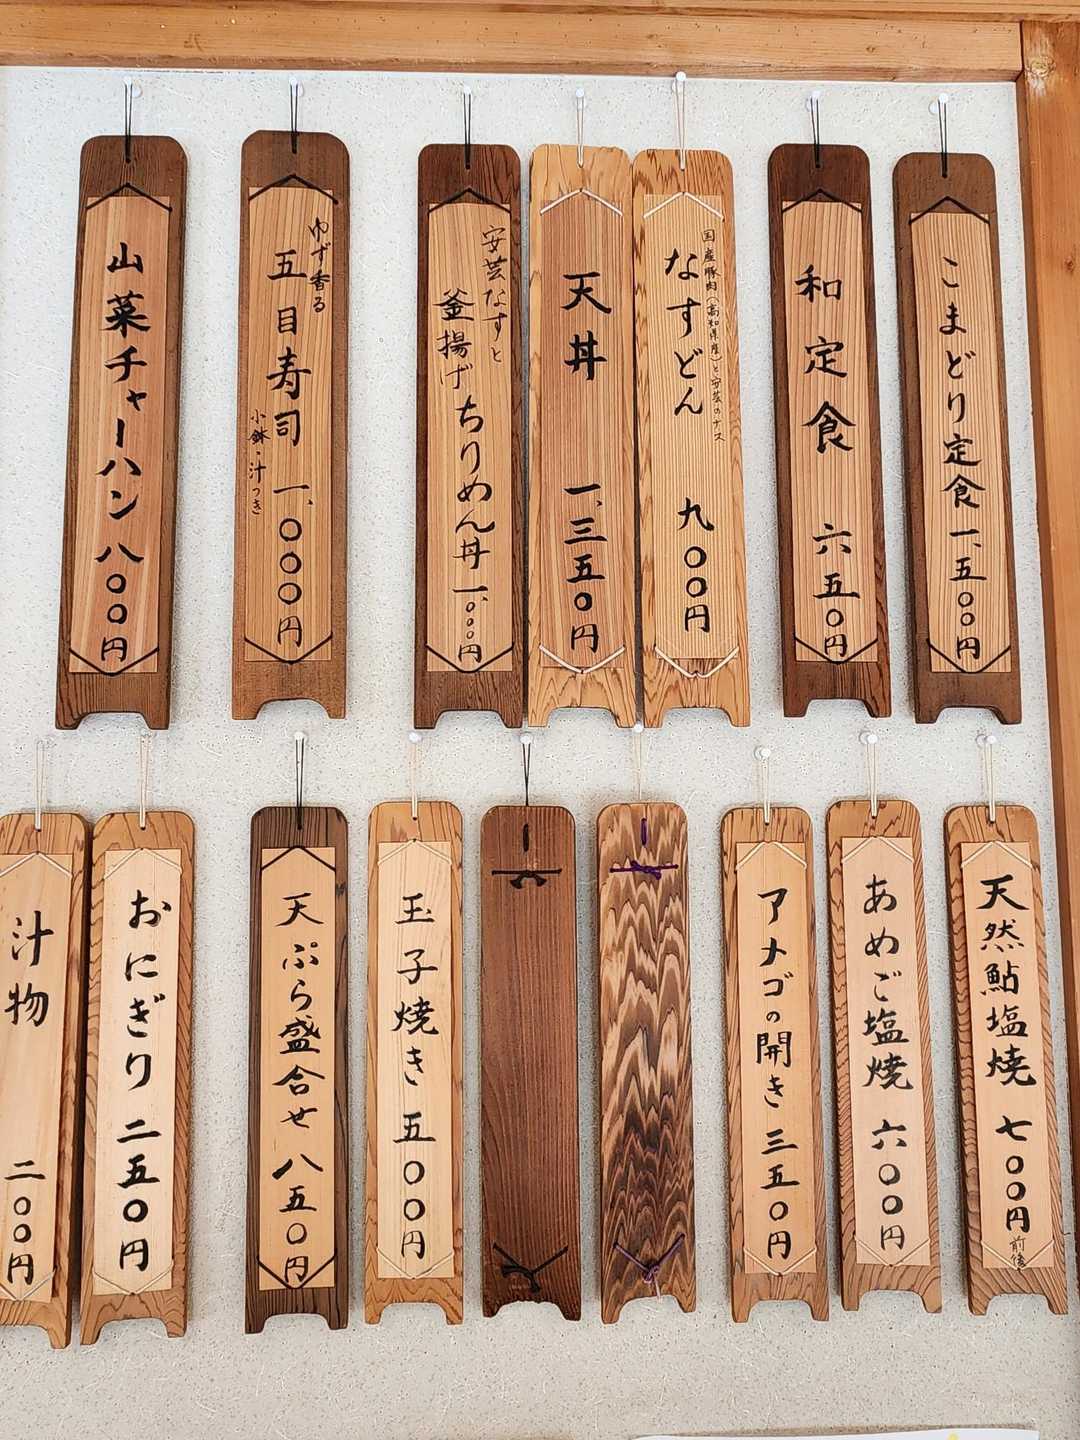 こまどり定食 一、五〇〇円
和定食 六五〇円
国産豚肉(高知県産)と安芸のナス
なすどん 九〇〇円
天丼 一、三五〇円
安芸なすと
釜揚げちりめん丼 一、〇〇〇円
ゆず香る
五目寿司 一、〇〇〇円
小鉢・汁つき
山菜チャーハン 八〇〇円
天然鮎塩焼 七〇〇円前後
あめご塩焼 六〇〇円
アメゴの開き 三五〇円
玉子焼き 五〇〇円
天ぷら盛合せ 八五〇円
おにぎり 二五〇円
汁物 二〇〇円